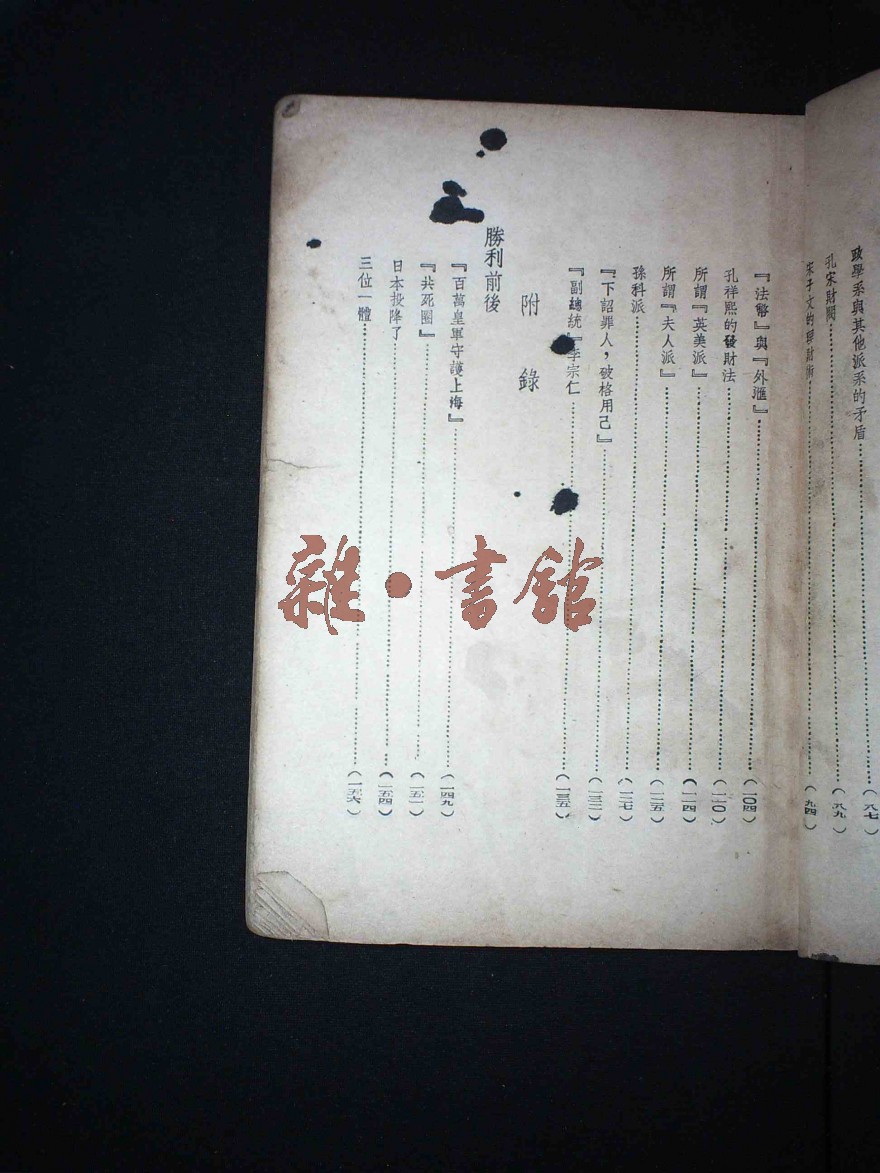 政學系與其他派系的矛盾……(八七)
孔宋財閥……(八九)
宋子文的理財術……(九四)
『法幣』與『外滙』……(一〇四)
孔祥熙的發財法……(一一〇)
所謂『英美派』……(一一四)
所謂『夫人派』……(一二五)
孫科派……(一二七)
『下詔罪人，破格用己』……(一三二)
『副總統』李宗仁……(一三五)
附錄
勝利前後
『百萬皇軍守護上海』……(一四九)
『共死圈』……(一五一)
日本投降了……(一五四)
三位一體……(一五六)
雜·書館